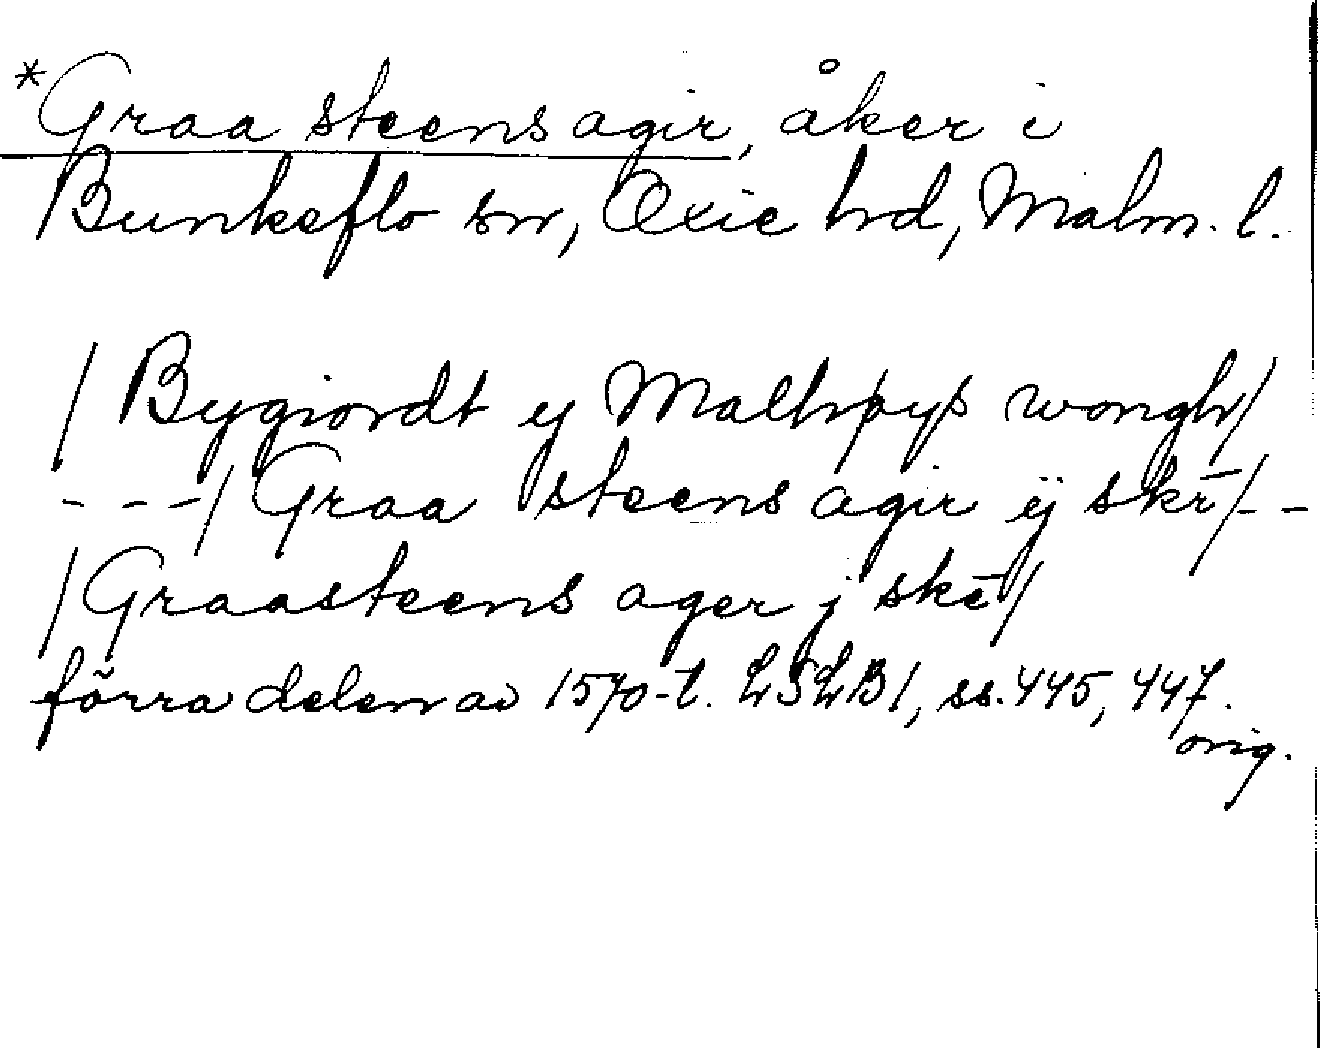 *Graa steens agir, åker i
Bunkeflo sn, Oxie hd, Malm. l.
/ Bygiordt y Malhøys wongh/
---/ Graa steens agir ij skr̄/--
/ Graasteens ager j skē/
förra delen av 1570-t. LSLB1, ss. 445, 447.
orig.